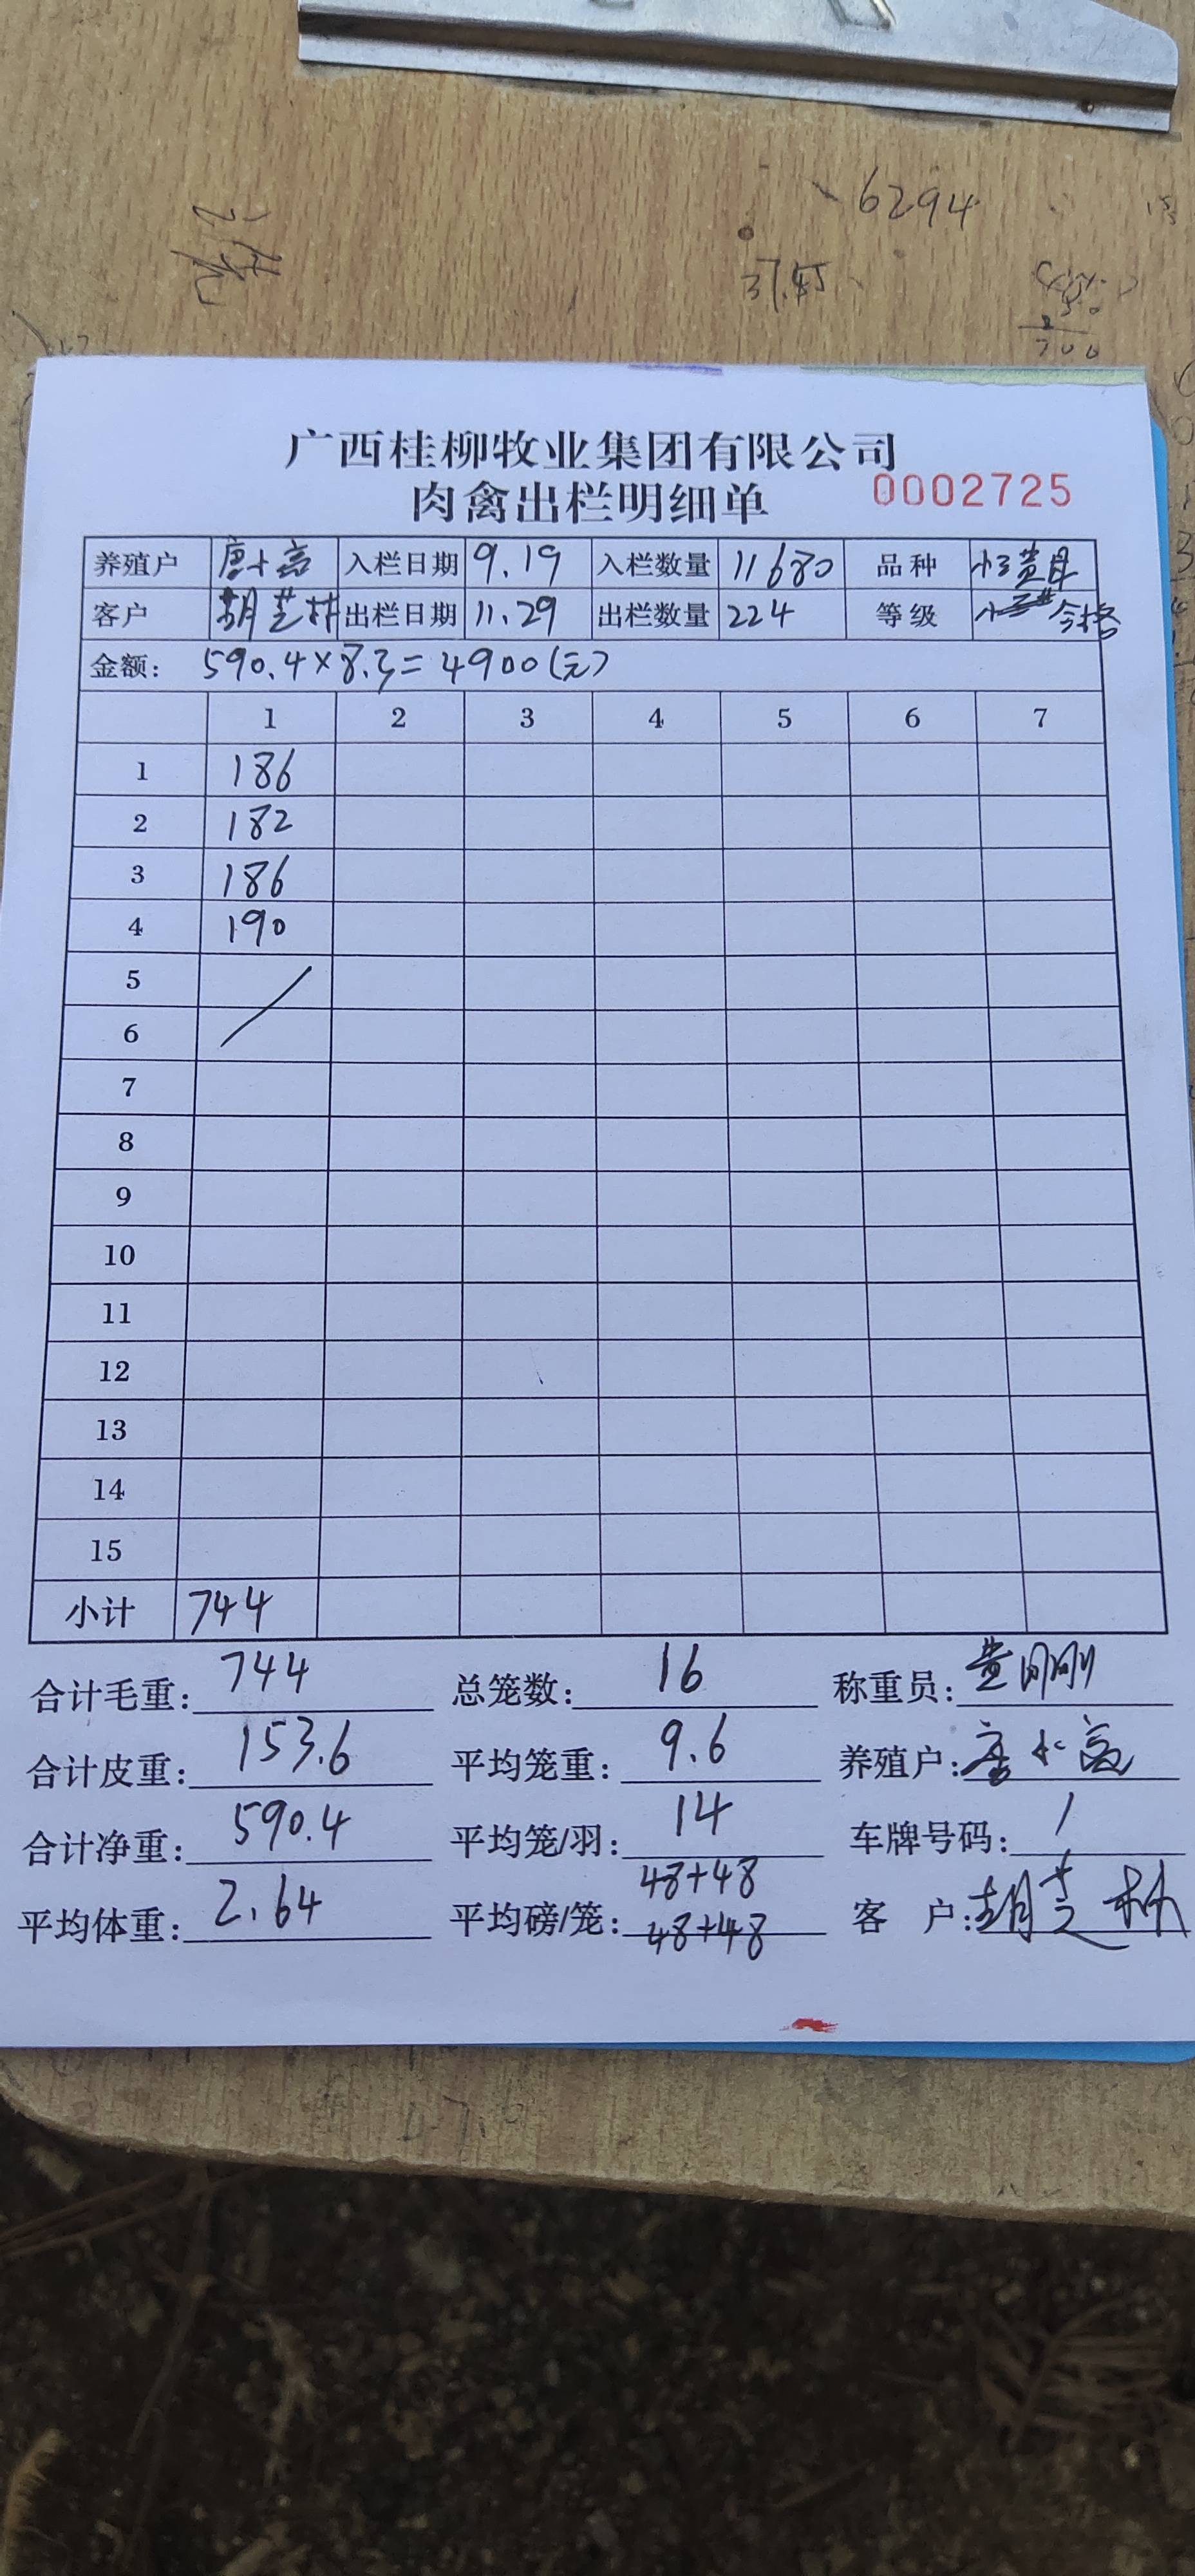 6294
37.45
700
广西桂柳牧业集团有限公司
肉禽出栏明细单 0002725
养殖户 唐小高 入栏日期 9.19 入栏数量 11680 品种
客户 胡芝林 出栏日期 11.29 出栏数量 224 等级 合格
金额: 590.4×8.3=4900(元)
1 2 3 4 5 6 7
1 186
2 182
3 186
4 190
5
6
7
8
9
10
11
12
13
14
15
小计 744
合计毛重: 744 总笼数: 16 称重员: 黄刚刚
合计皮重: 153.6 平均笼重: 9.6 养殖户:
合计净重: 590.4 平均笼/羽: 14 车牌号码: /
平均体重: 2.64 平均磅/笼: 48+48 48+48 客 户: 胡芝林